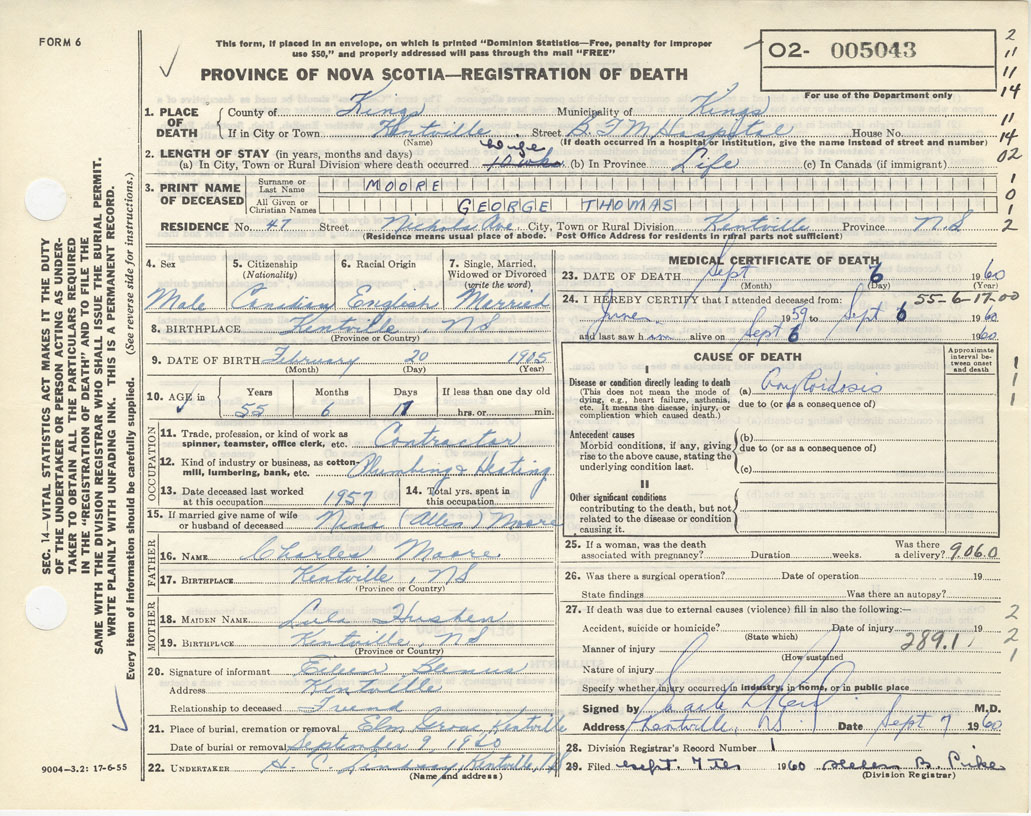 FORM 6
This form, if placed in an envelope, on which is printed "Dominion Statistics—Free, penalty for improper
use $50," and properly addressed will pass through the mail "FREE"
PROVINCE OF NOVA SCOTIA—REGISTRATION OF DEATH
02- 005043
For use of the Department only
2
11
11
14
11
14
02
1
0
1
2
1. PLACE OF DEATH
County of Kings Municipality of Kings
If in City or Town Kentville Street B.F.M. Hospital House No.
(Name) (If death occurred in a hospital or institution, give the name instead of street and number)
2. LENGTH OF STAY (in years, months and days)
(a) In City, Town or Rural Division where death occurred (b) In Province Life (c) In Canada (if immigrant)
3. PRINT NAME OF DECEASED
Surname or Last Name MOORE
All Given or Christian Names GEORGE THOMAS
RESIDENCE No. 47 Street Nichols Ave. City, Town or Rural Division Kentville Province N.S
(Residence means usual place of abode. Post Office Address for residents in rural parts not sufficient)
4. Sex
Male
5. Citizenship
(Nationality)
Canadian
6. Racial Origin
English
7. Single, Married,
Widowed or Divorced
(write the word)
Married
8. BIRTHPLACE Kentville, NS
(Province or Country)
9. DATE OF BIRTH February 20 1905
(Month) (Day) (Year)
10. AGE in
Years Months Days If less than one day old
55 6 17 hrs. or min.
OCCUPATION
11. Trade, profession, or kind of work as
spinner, teamster, office clerk, etc. Contractor
12. Kind of industry or business, as cotton-
mill, lumbering, bank, etc. Plumbing & Heating
13. Date deceased last worked
at this occupation 1957
14. Total yrs. spent in
this occupation
15. If married give name of wife
or husband of deceased Nina (Allen) Moore
FATHER
16. NAME Charles Moore
17. BIRTHPLACE Kentville, NS
(Province or Country)
MOTHER
18. MAIDEN NAME Lula
19. BIRTHPLACE Kentville, NS
(Province or Country)
20. Signature of informant Eileen
Address Kentville
Relationship to deceased Friend
21. Place of burial, cremation or removal Elm Grove, Kentville
Date of burial or removal September 9, 1960
22. UNDERTAKER H. C. Lindsay, Kentville, NS
(Name and address)
MEDICAL CERTIFICATE OF DEATH
23. DATE OF DEATH Sept 6 1960
(Month) (Day) (Year)
24. I HEREBY CERTIFY that I attended deceased from: 55-6-17-00
June 1959 to Sept 6 1960
and last saw him alive on Sept 6 1960
CAUSE OF DEATH
Approximate
interval be-
tween onset
and death
I
Disease or condition directly leading to death
(This does not mean the mode of
dying, e.g., heart failure, asthenia,
etc. It means the disease, injury, or
complication which caused death.)
(a) Amyloidosis
due to (or as a consequence of)
Antecedent causes
Morbid conditions, if any, giving
rise to the above cause, stating the
underlying condition last.
(b)
due to (or as a consequence of)
(c)
II
Other significant conditions
contributing to the death, but not
related to the disease or condition
causing it.
1
1
1
25. If a woman, was the death
associated with pregnancy? Duration weeks. Was there
a delivery? 906.0
26. Was there a surgical operation? Date of operation 19
State findings Was there an autopsy?
27. If death was due to external causes (violence) fill in also the following:—
Accident, suicide or homicide? Date of injury 19
(State which)
Manner of injury 289.1
(How sustained)
Nature of injury
Specify whether injury occurred in industry, in home, or in public place
2
2
1
Signed by M.D.
Address Kentville, NS Date Sept 7 1960
28. Division Registrar's Record Number 1
29. Filed Sept. 7 1960 Helen B. Pike
(Division Registrar)
SEC. 14—VITAL STATISTICS ACT MAKES IT THE DUTY
OF THE UNDERTAKER OR PERSON ACTING AS UNDER-
TAKER TO OBTAIN ALL THE PARTICULARS REQUIRED
IN THE "REGISTRATION OF DEATH" AND FILE THE
SAME WITH THE DIVISION REGISTRAR WHO SHALL ISSUE THE BURIAL PERMIT.
WRITE PLAINLY WITH UNFADING INK. THIS IS A PERMANENT RECORD.
Every item of information should be carefully supplied. (See reverse side for instructions.)
9004-3.2: 17-6-55